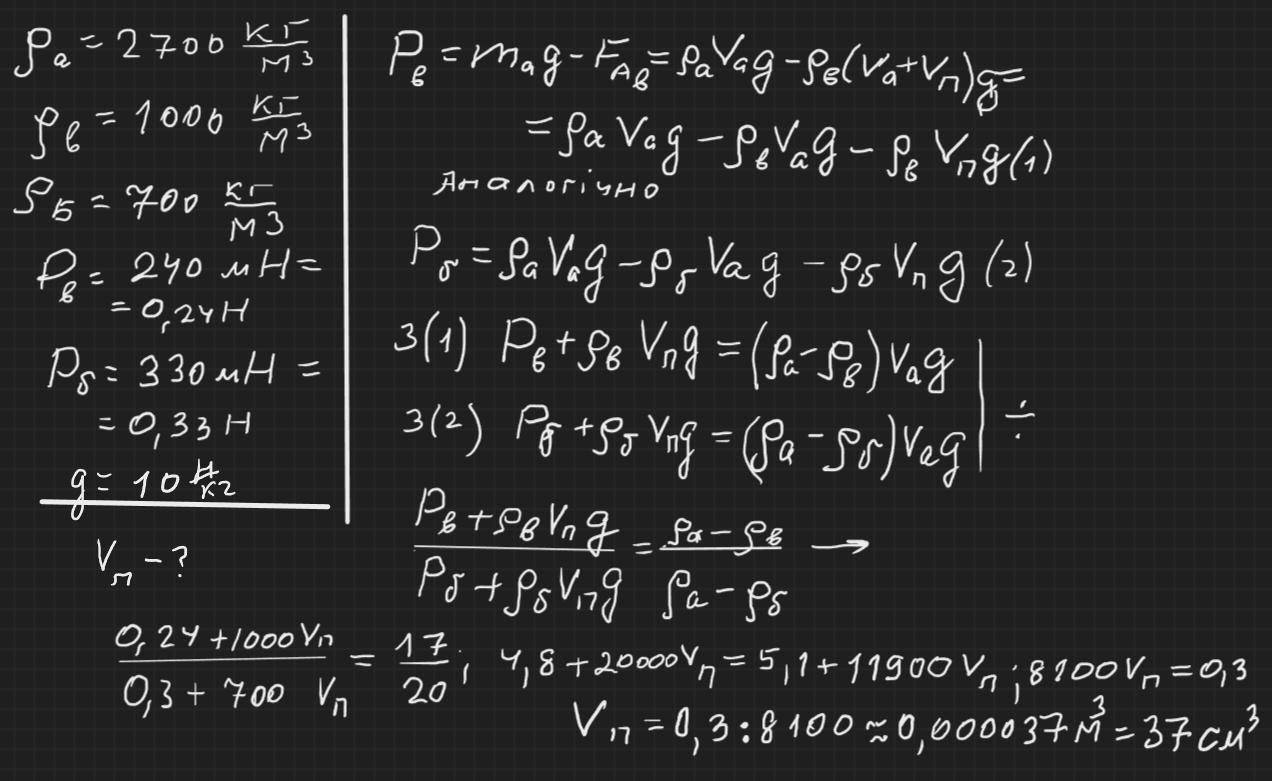 ρₐ = 2700 кг/м³
ρв = 1000 кг/м³
ρБ = 700 кг/м³
Pв = 240 мН =
= 0,24Н
Pб = 330 мН =
= 0,33 Н
g = 10 Н/кг
Vп - ?
Pв = mₐg - FАв = ρₐVₐg - ρв(Vₐ+Vп)g =
= ρₐVₐg - ρвVₐg - ρвVпg (1)
Аналогічно
Pб = ρₐVₐg - ρбVₐg - ρбVпg (2)
З(1) Pв + ρвVпg = (ρₐ-ρв)Vₐg
З(2) Pб + ρбVпg = (ρₐ-ρб)Vₐg | ÷
(Pв + ρвVпg)/(Pб + ρбVпg) = (ρₐ - ρв)/(ρₐ - ρб) →
(0,24 + 1000Vп)/(0,3 + 700Vп) = 17/20; 4,8 + 20000Vп = 5,1 + 11900Vп; 8100Vп = 0,3
Vп = 0,3 : 8100 ≈ 0,000037 м³ = 37 см³